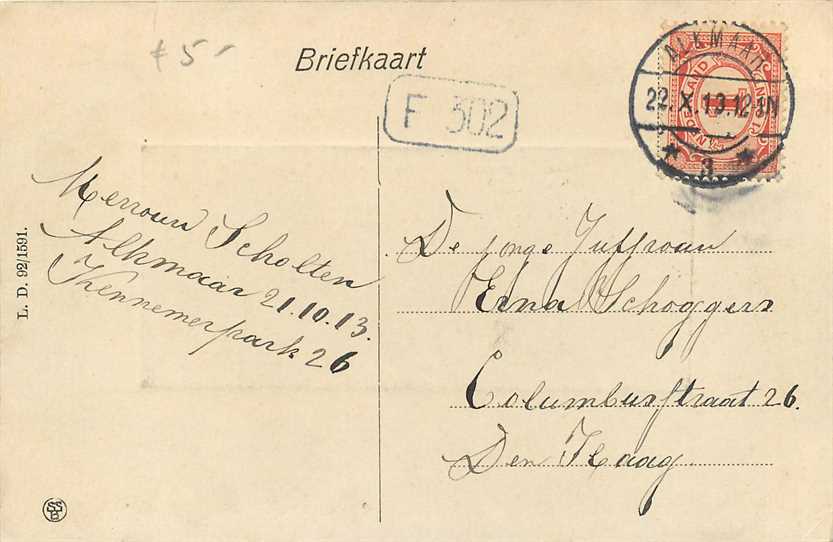 £ 5-
Briefkaart
F 302
ALKMAAR
22.X.13.12-1N
* 3. *
Mevrouw Scholten
Alkmaar 21.10.13.
Kennemerpark 26
L. D. 92/1591.
De jonge Juffrouw
Erna Schoggers
Columbusstraat 26.
Den Haag